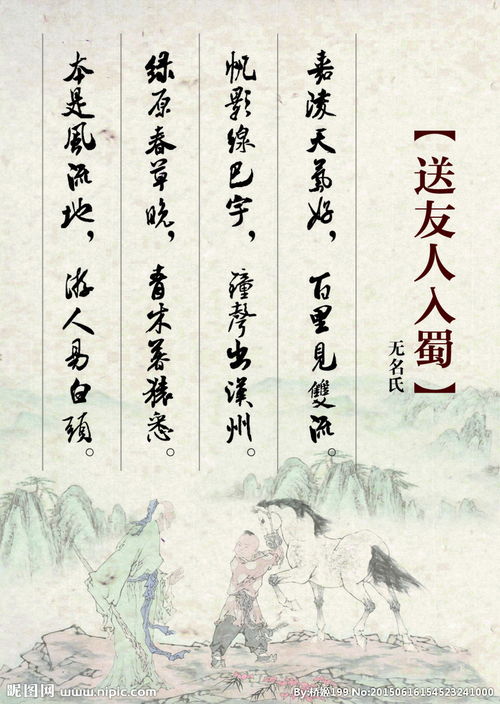 【送友人入蜀】
无名氏
嘉凌天氣好，百里見雙流。
帆影線巴字，鐘聲出漢州。
绿原春草晚，青木暮猿愁。
本是風流地，游人易白頭。
昵图网 www.nipic.com
By:桥姬199 No:20150616154523241000